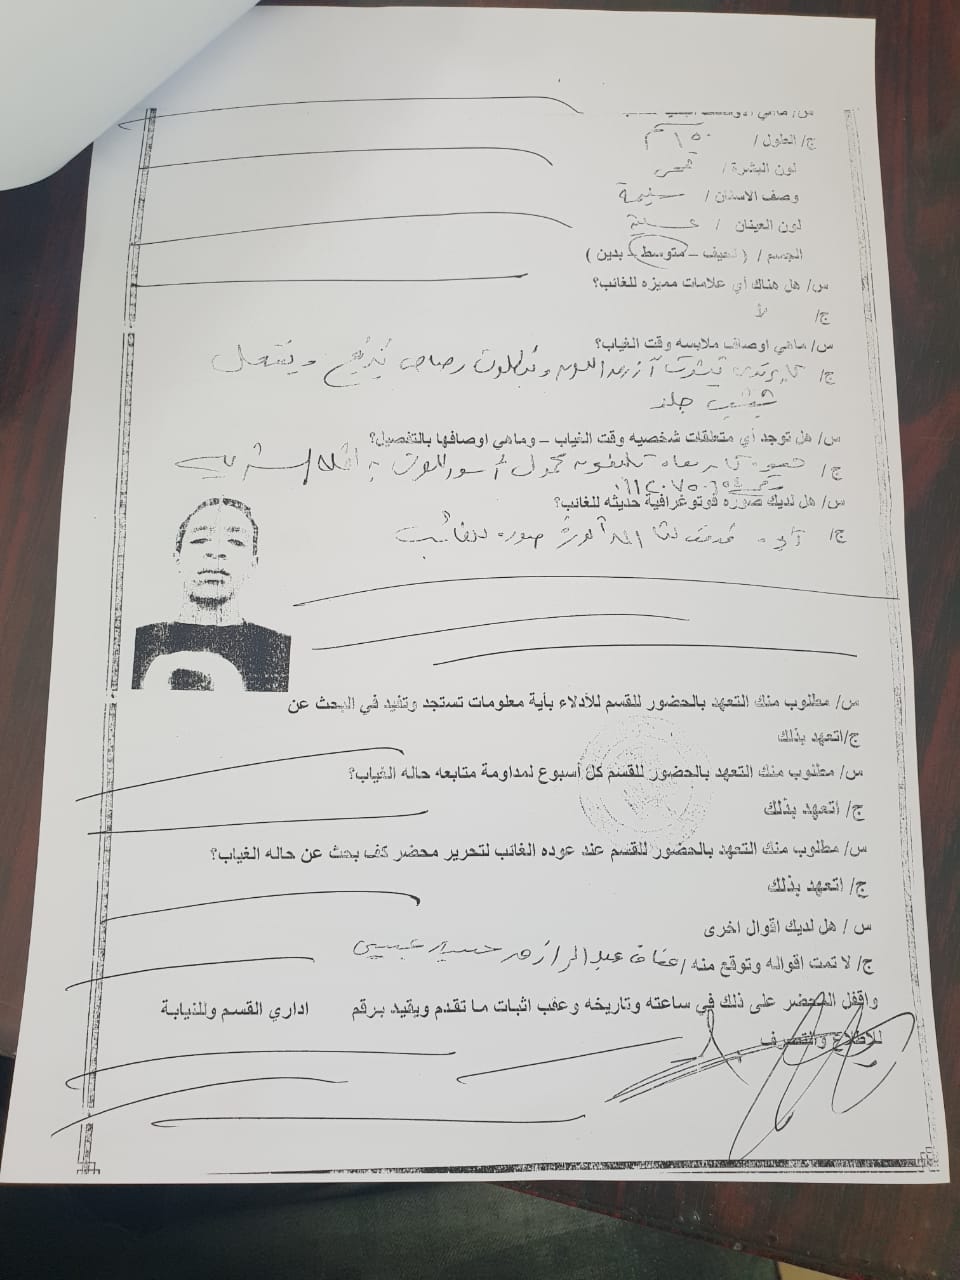 س/ ماهي
ج/ الطول / ١٥٠ م
لون البشرة / قمحي
وصف الاسنان / سليمة
لون العينان / عسلية
الجسم / ( نحيف – متوسط – بدين )
س/ هل هناك أي علامات مميزه للغائب؟
ج/ لا
س/ ماهي اوصاف ملابسه وقت الغياب؟
ج/ كان يرتدي تيشرت أزرق اللون وبنطلون رصاصي وينتعل
شبشب جلد
س/ هل توجد أي متعلقات شخصيه وقت الغياب – وماهي اوصافها بالتفصيل؟
ج/ كان معاه تليفون محمول أسود اللون به
س/ هل لديك صوره فوتوغرافية حديثه للغائب؟
ج/ صوره للغائب
س/ مطلوب منك التعهد بالحضور للقسم للأدلاء بأية معلومات تستجد وتفيد في البحث عن
ج/اتعهد بذلك
س/ مطلوب منك التعهد بالحضور للقسم كل أسبوع لمداومة متابعه حاله الغياب؟
ج/ اتعهد بذلك
س/ مطلوب منك التعهد بالحضور للقسم عند عوده الغائب لتحرير محضر كف بحث عن حاله الغياب؟
ج/ اتعهد بذلك
س / هل لديك اقوال اخرى
ج/ لا تمت اقواله وتوقع منه / عفاف عبد الرازق حسين
واقفل المحضر على ذلك في ساعته وتاريخه وعقب اثبات ما تقدم ويقيد برقم اداري القسم وللنيابة
للاطلاع والتصرف